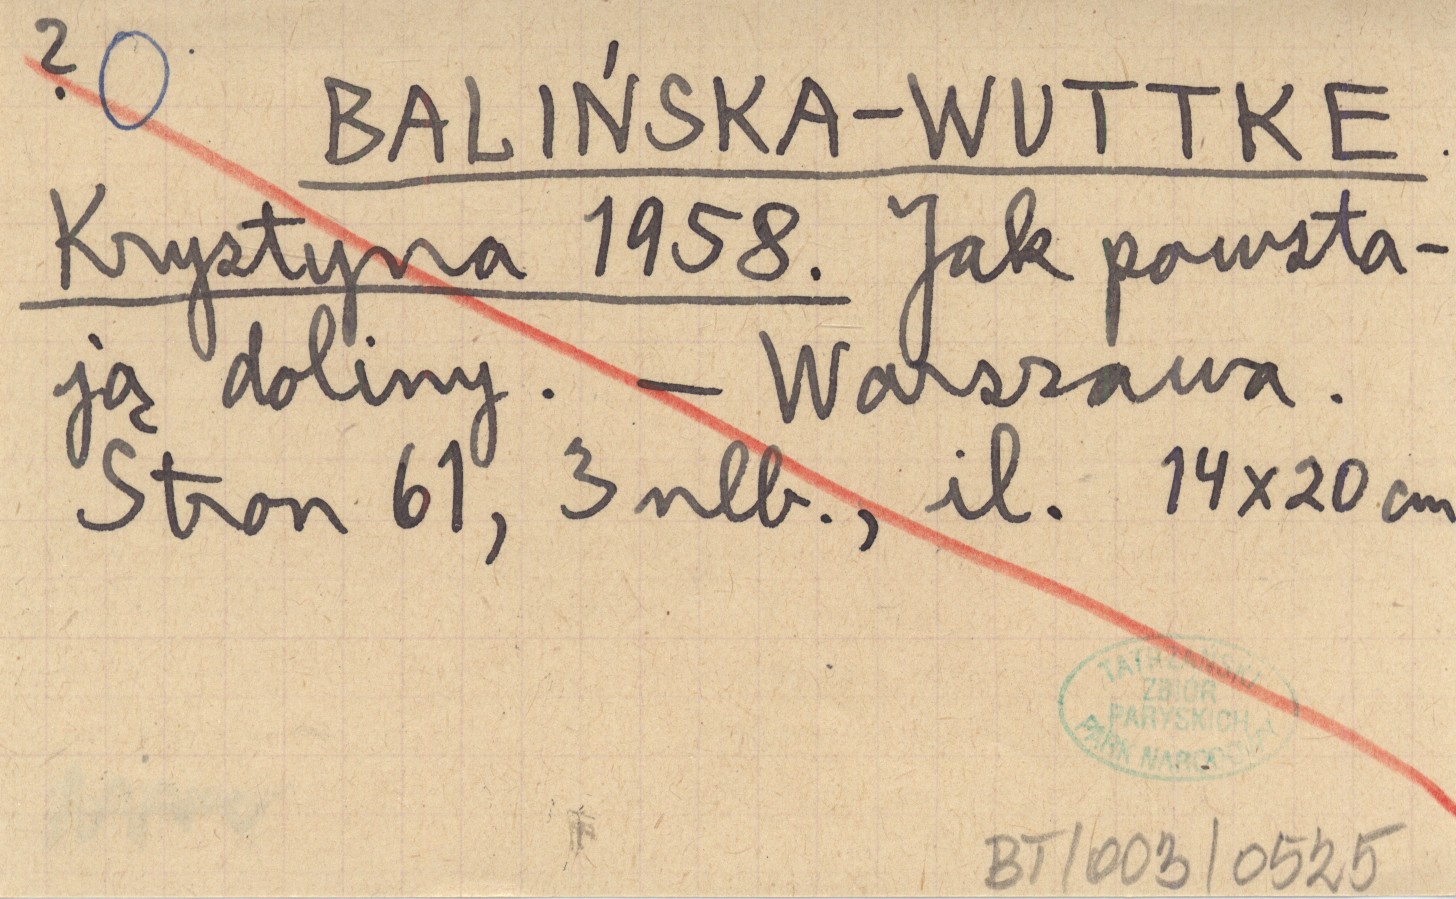 ?
BALIŃSKA-WUTTKE
Krystyna 1958. Jak powsta-
ją doliny. — Warszawa.
Stron 61, 3 nlb., il. 14x20 cm
TATRZAŃSKI
ZBIÓR
PARYSKICH
PARK NARODOWY
BT/003/0525